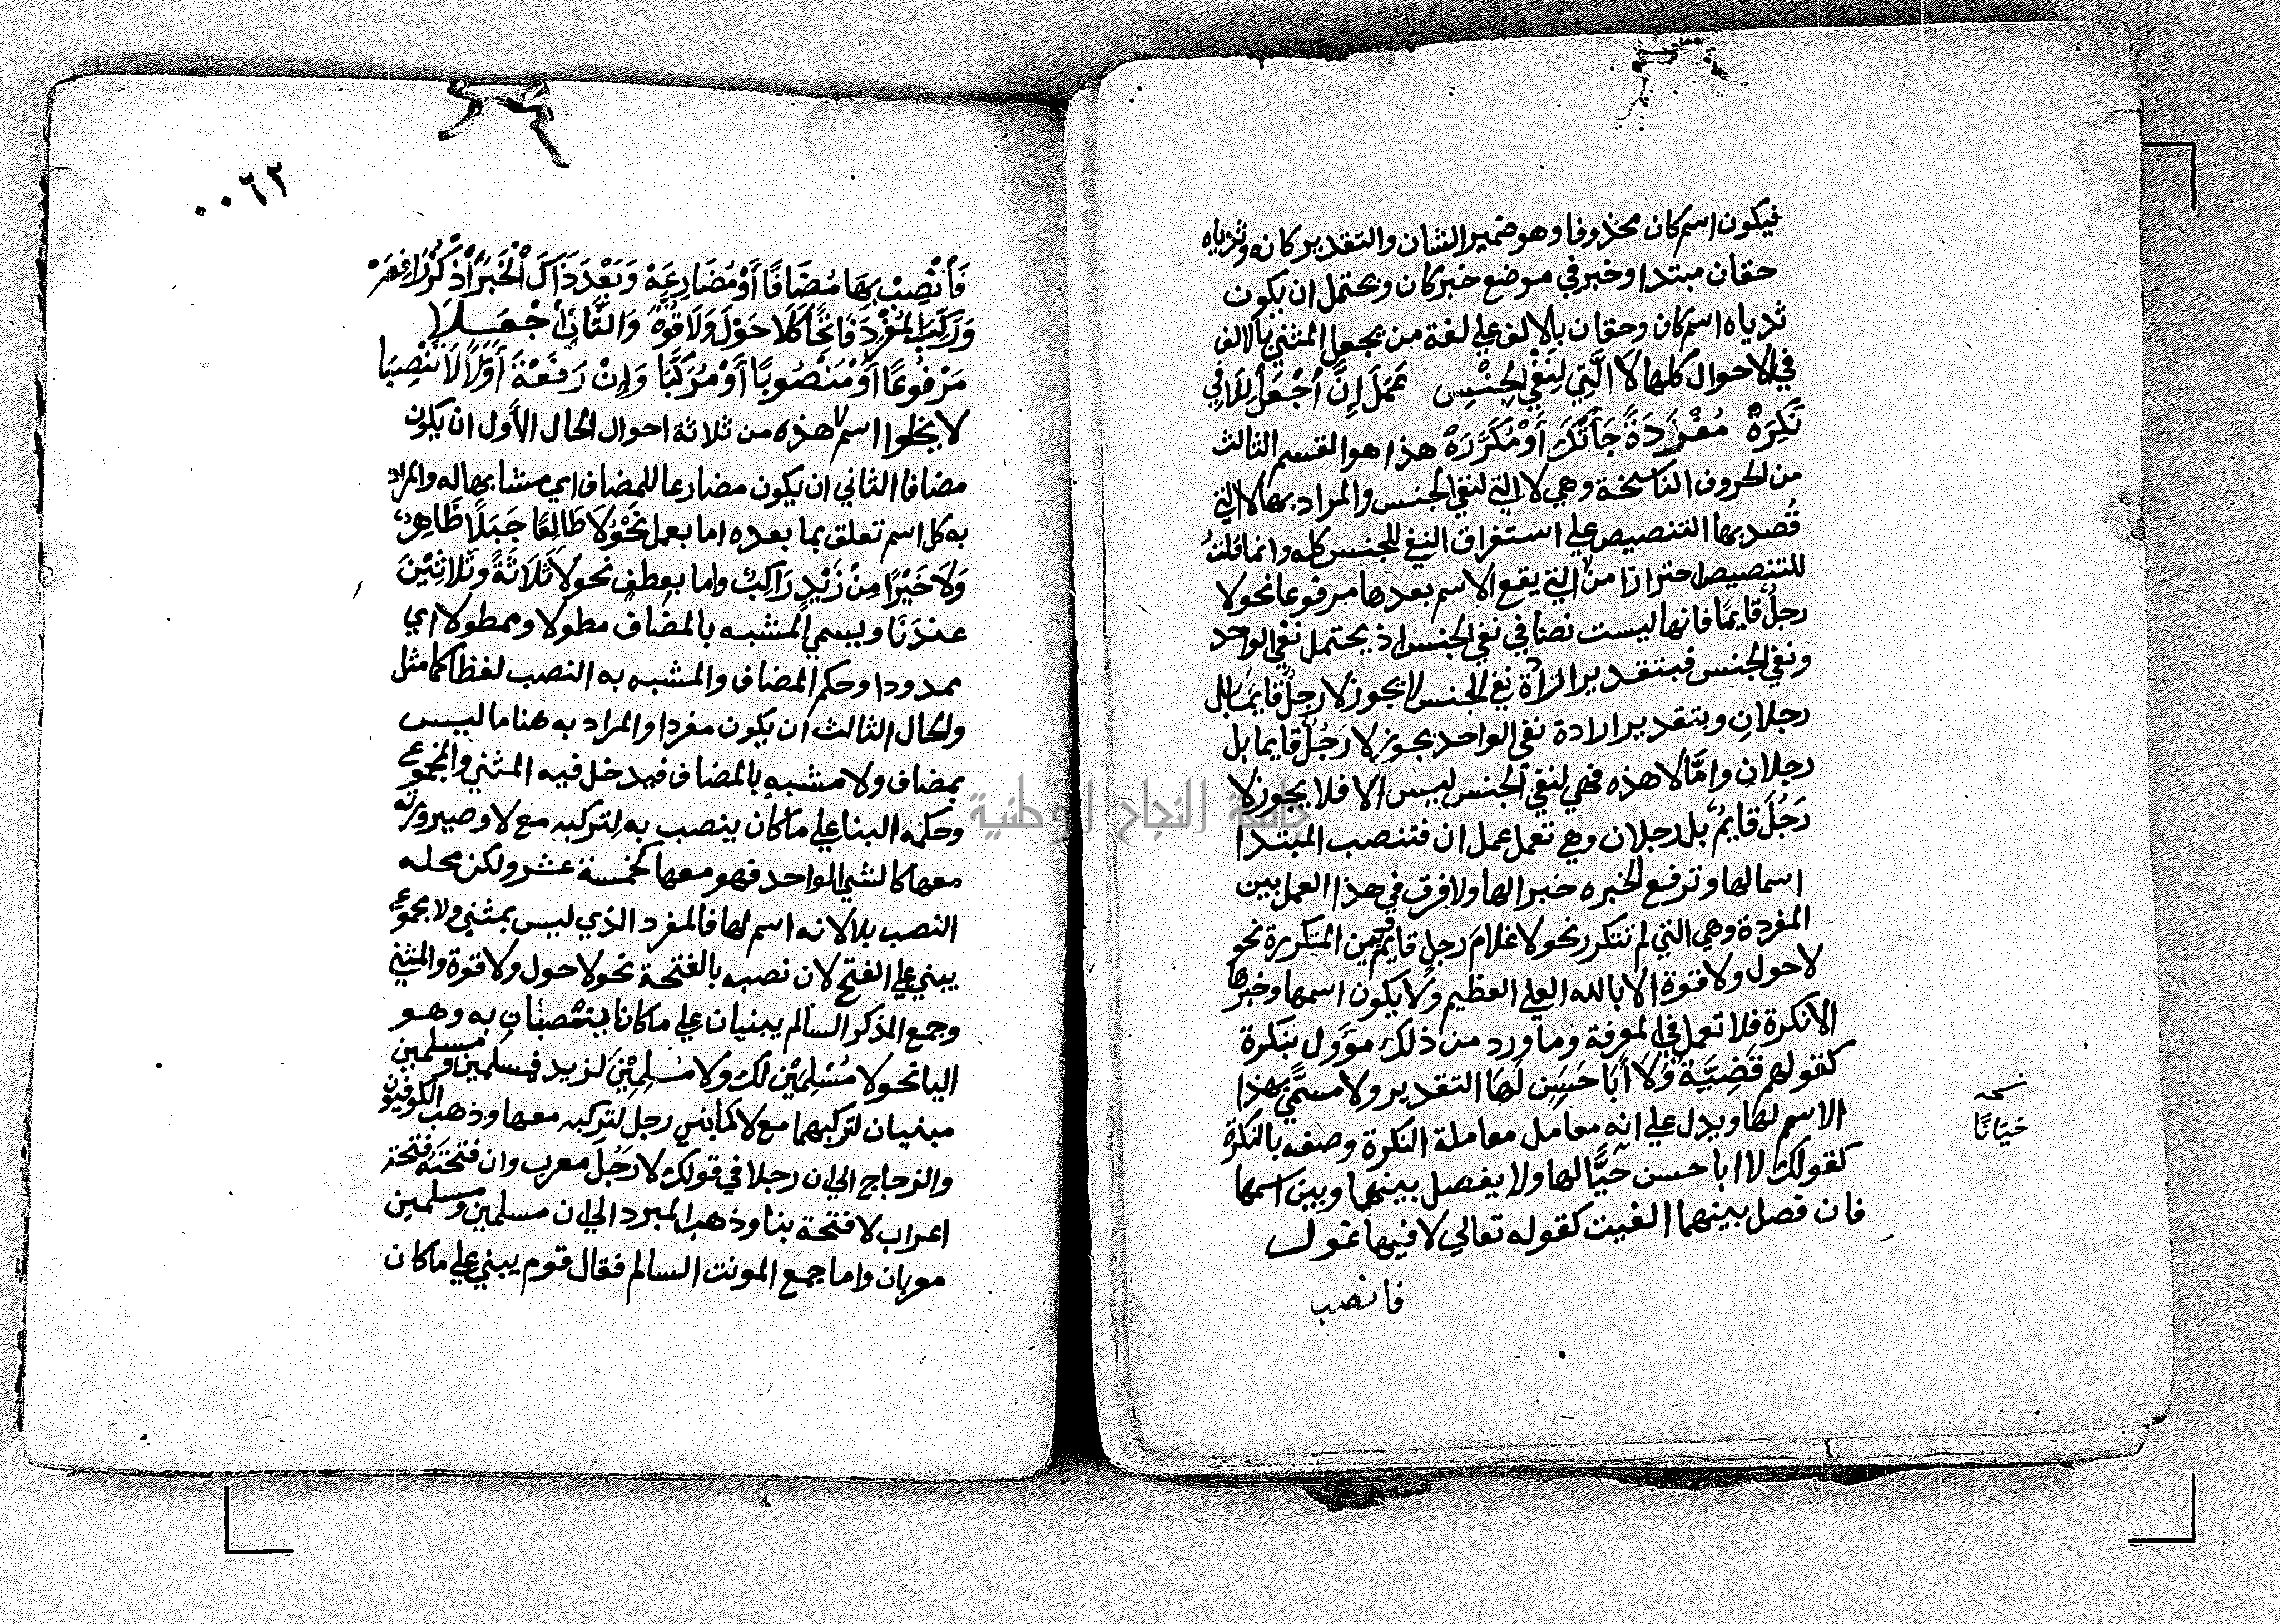 فيكون اسم كان محذوفا وهو ضمير الشان والتقدير كانه وثدياه
حقان مبتدا وخبر في موضع خبر كان ويحتمل ان يكون
ثدياه اسم كان وحقان بالالف علي لغة من يجعل المثني بالالف
في الاحوال كلها لا الَّتِي لِنَفْيِ الجِنْسِ عَمَلَ إِنَّ اُجْعَلْ لِلَا فِي
نَكِرَةْ مُفْرَدَةً جَأَتْكَ أَوْ مُكَرَّرَةْ هذا هو القسم الثالث
من الحروف الناسخة وهي لا التي لنفي الجنس والمراد بها لا التي
قُصد بها التنصيص علي استغراق النفي للجنس كله وانما قلتُ
للتنصيص احترازا من التي يقع الاسم بعدها مرفوعا نحو لا
رجلٌ قايمًا فانها ليست نصا في نفي الجنس اذ يحتمل نفي الواحد
ونفي الجنس فبتقدير ارادة نفي الجنس لا يجوز لا رجلٌ قايمًا بل
رجلانِ وبتقدير ارادة نفي الواحد يجوز لا رَجُلٌ قايما بل
رجلانِ وامَّا لا هذه فهي لنفي الجنس ليس الا فلا يجوز لا
رَجُلَ قايمٌ بل رجلان وهي تعمل عمل ان فتنصب المبتدا
اسما لها وترفع الخبره خبرا لها ولا فرق في هذا العمل بين
المفردة وهي التي لم تتكرر نحو لا غلامَ رجلٍ قايمٌ وبين المتكررة نحو
لا حول ولا قوة الا بالله العلي العظيم ولا يكون اسمها وخبرها
الا نكرة فلا تعمل في المعرفة وما ورد من ذلك مؤول بنكرة
كقولهم قَضِيَّةٌ وَلَا أَبَا حَسَنٍ لَهَا التقدير ولا مسمًّي بهذا
الاسم لها ويدل علي انه معامل معاملة النكرة وصفه بالنكرة
كقولك لا ابا حسن حَيًّا لها ولا يفصل بينها وبين اسمها
فان فصل بينهما الغيت كقوله تعالي لا فيها غول
فانصب
نسخه
حَيَانًا
٠٠٦٢
فَأَنْصِبْ بِهَا مُضَافًا أَوْ مُضَارِعَهْ وَبَعْدَ ذَاكَ الْخَبَرَ اْذْكُرْ رَافِعَهْ
وَرَكِّبِ المُفْرَدَ فَاتِحًا كَلَا حَوْلَ وَلَا قُوَّةَ وَالثَّانِ اُجْعَلَا
مَرْفُوعًا أَوْ مَنْصُوبًا أَوْ مُرَكَّبَا وَإِنْ رَفَعْتَ أَوَّلًا لَا تَنْصِبَا
لا يخلوا اسم لا هذه من ثلاثة احوال الحال الأول ان يكون
مضافا الثاني ان يكون مضارعا للمضاف اي مشابها له والمراد
به كل اسم تعلق بما بعده اما بعمل نَحْوُ لَا طَالِعًا جَبَلًا ظَاهِرٌ
وَلَا خَيْرًا مِنْ زَيْدٍ رَاكِبٌ واما بعطف نحو لَا ثَلَاثَةً وثَلَاثِيْنَ
عِنْدَنَا ويسمي المشبه بالمضاف مطولا وممطولا اي
ممدودا وحكم المضاف والمشبه به النصب لفظا كما مثل
والحال الثالث ان يكون مفردا والمراد به هنا ما ليس
بمضاف ولا مشبه بالمضاف فيدخل فيه المثني والمجموع
وحكمه البنا علي ما كان ينصب به لتركبه مع لا وصيرورته
معها كالشي الواحد فهو معها كخمسة عشر ولكن محله
النصب بلا لانه اسم لها فالمفرد الذي ليس بمثني ولا مجموع
يبني علي الفتح لان نصبه بالفتحة نحو لا حول ولا قوة والمثني
وجمع المذكر السالم يبنيان علي ما كانا ينصبان به وهو
اليا نحو لا مُسْلِمَيْن لك ولا مُسْلِمِيْنَ لزيد فمسلمين ومسلمين
مبنيان لتركبهما مع لا كما بني رجل لتركبه معها وذهب الكوفيون
والزجاج الي ان رجلا في قولك لا رَجُلَ معرب وان فتحته فتحة
اعراب لا فتحة بنا وذهب المبرد الي ان مسلمين ومسلمين
معربان واما جمع المونث السالم فقال قوم يبني علي ما كان
جامعة النجاح الوطنية